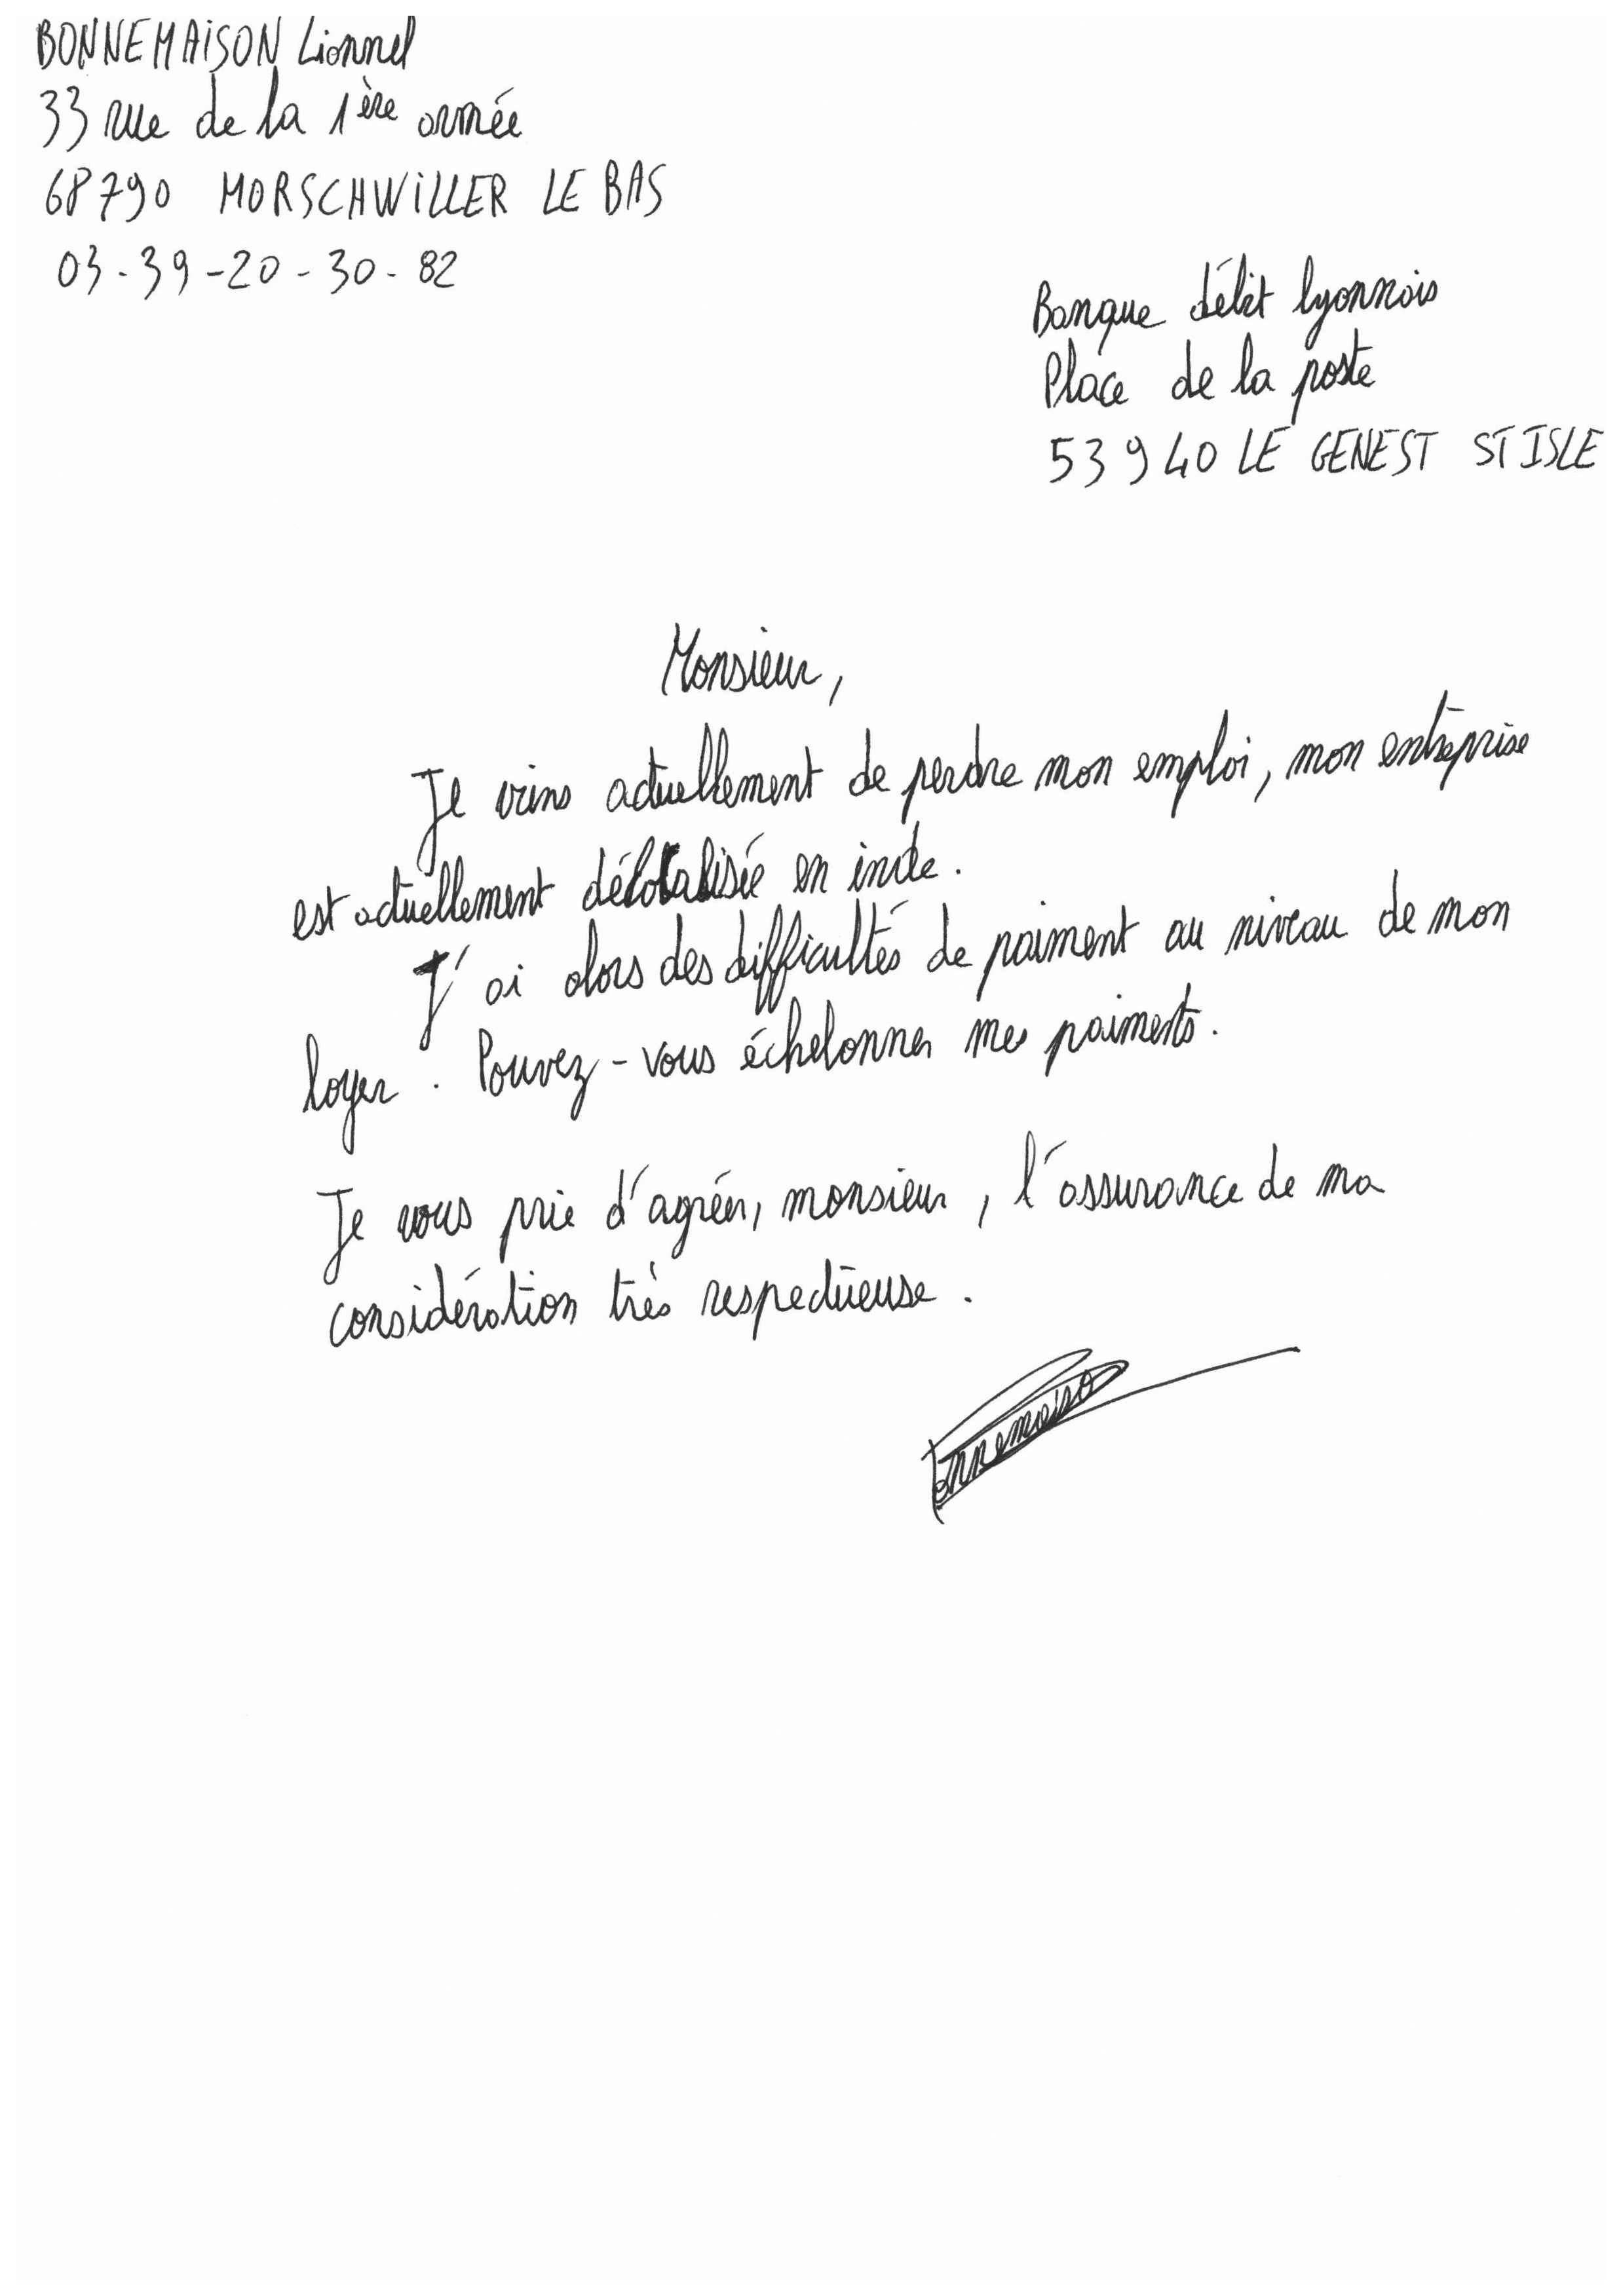 BONNEMAISON Lionnel
33 rue de la 1ère armée
68790 MORSCHWILLER LE BAS
03-39-20-30-82
Banque débit lyonnais
Place de la poste
53940 LE GENEST ST ISLE
Monsieur,
Je viens actuellement de perdre mon emploi, mon entreprise
est actuellement délocalisée en inde.
J'ai alors des difficultés de paiment au niveau de mon
loyer. Pouvez-vous échelonner mes paiments.
Je vous prie d'agréer, monsieur, l'assurance de ma
considération très respectueuse.